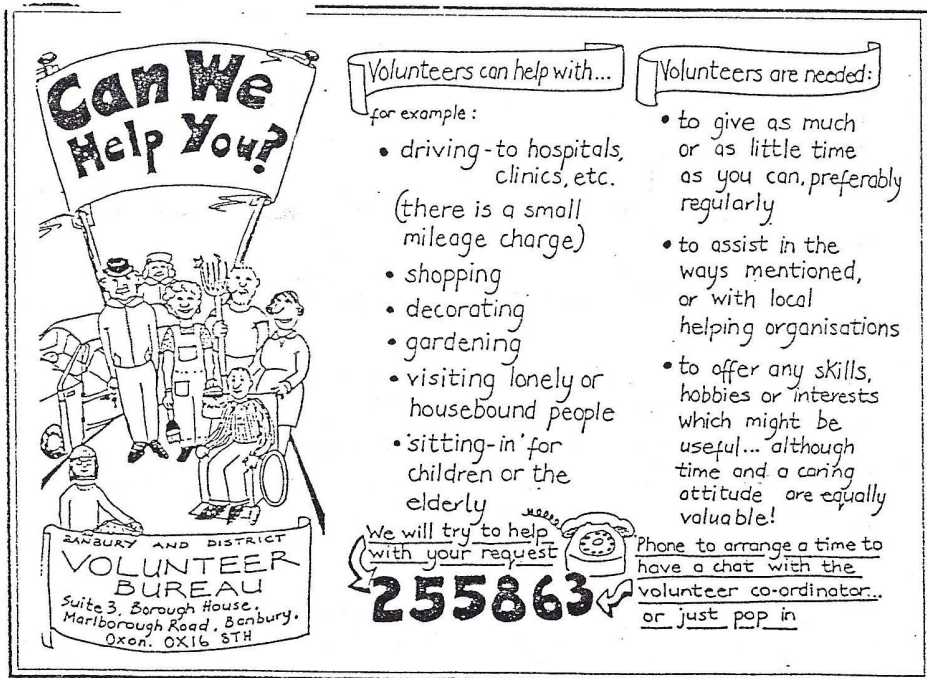 Can We
Help You?
BANBURY AND DISTRICT
VOLUNTEER
BUREAU
Suite 3, Borough House,
Marlborough Road, Banbury,
Oxon. OX16 8TH
Volunteers can help with...
for example:
• driving - to hospitals,
clinics, etc.
(there is a small
mileage charge)
• shopping
• decorating
• gardening
• visiting lonely or
housebound people
• 'sitting-in' for
children or the
elderly
We will try to help
with your request
255863
Volunteers are needed:
• to give as much
or as little time
as you can, preferably
regularly
• to assist in the
ways mentioned,
or with local
helping organisations
• to offer any skills,
hobbies or interests
which might be
useful... although
time and a caring
attitude are equally
valuable!
Phone to arrange a time to
have a chat with the
volunteer co-ordinator...
or just pop in